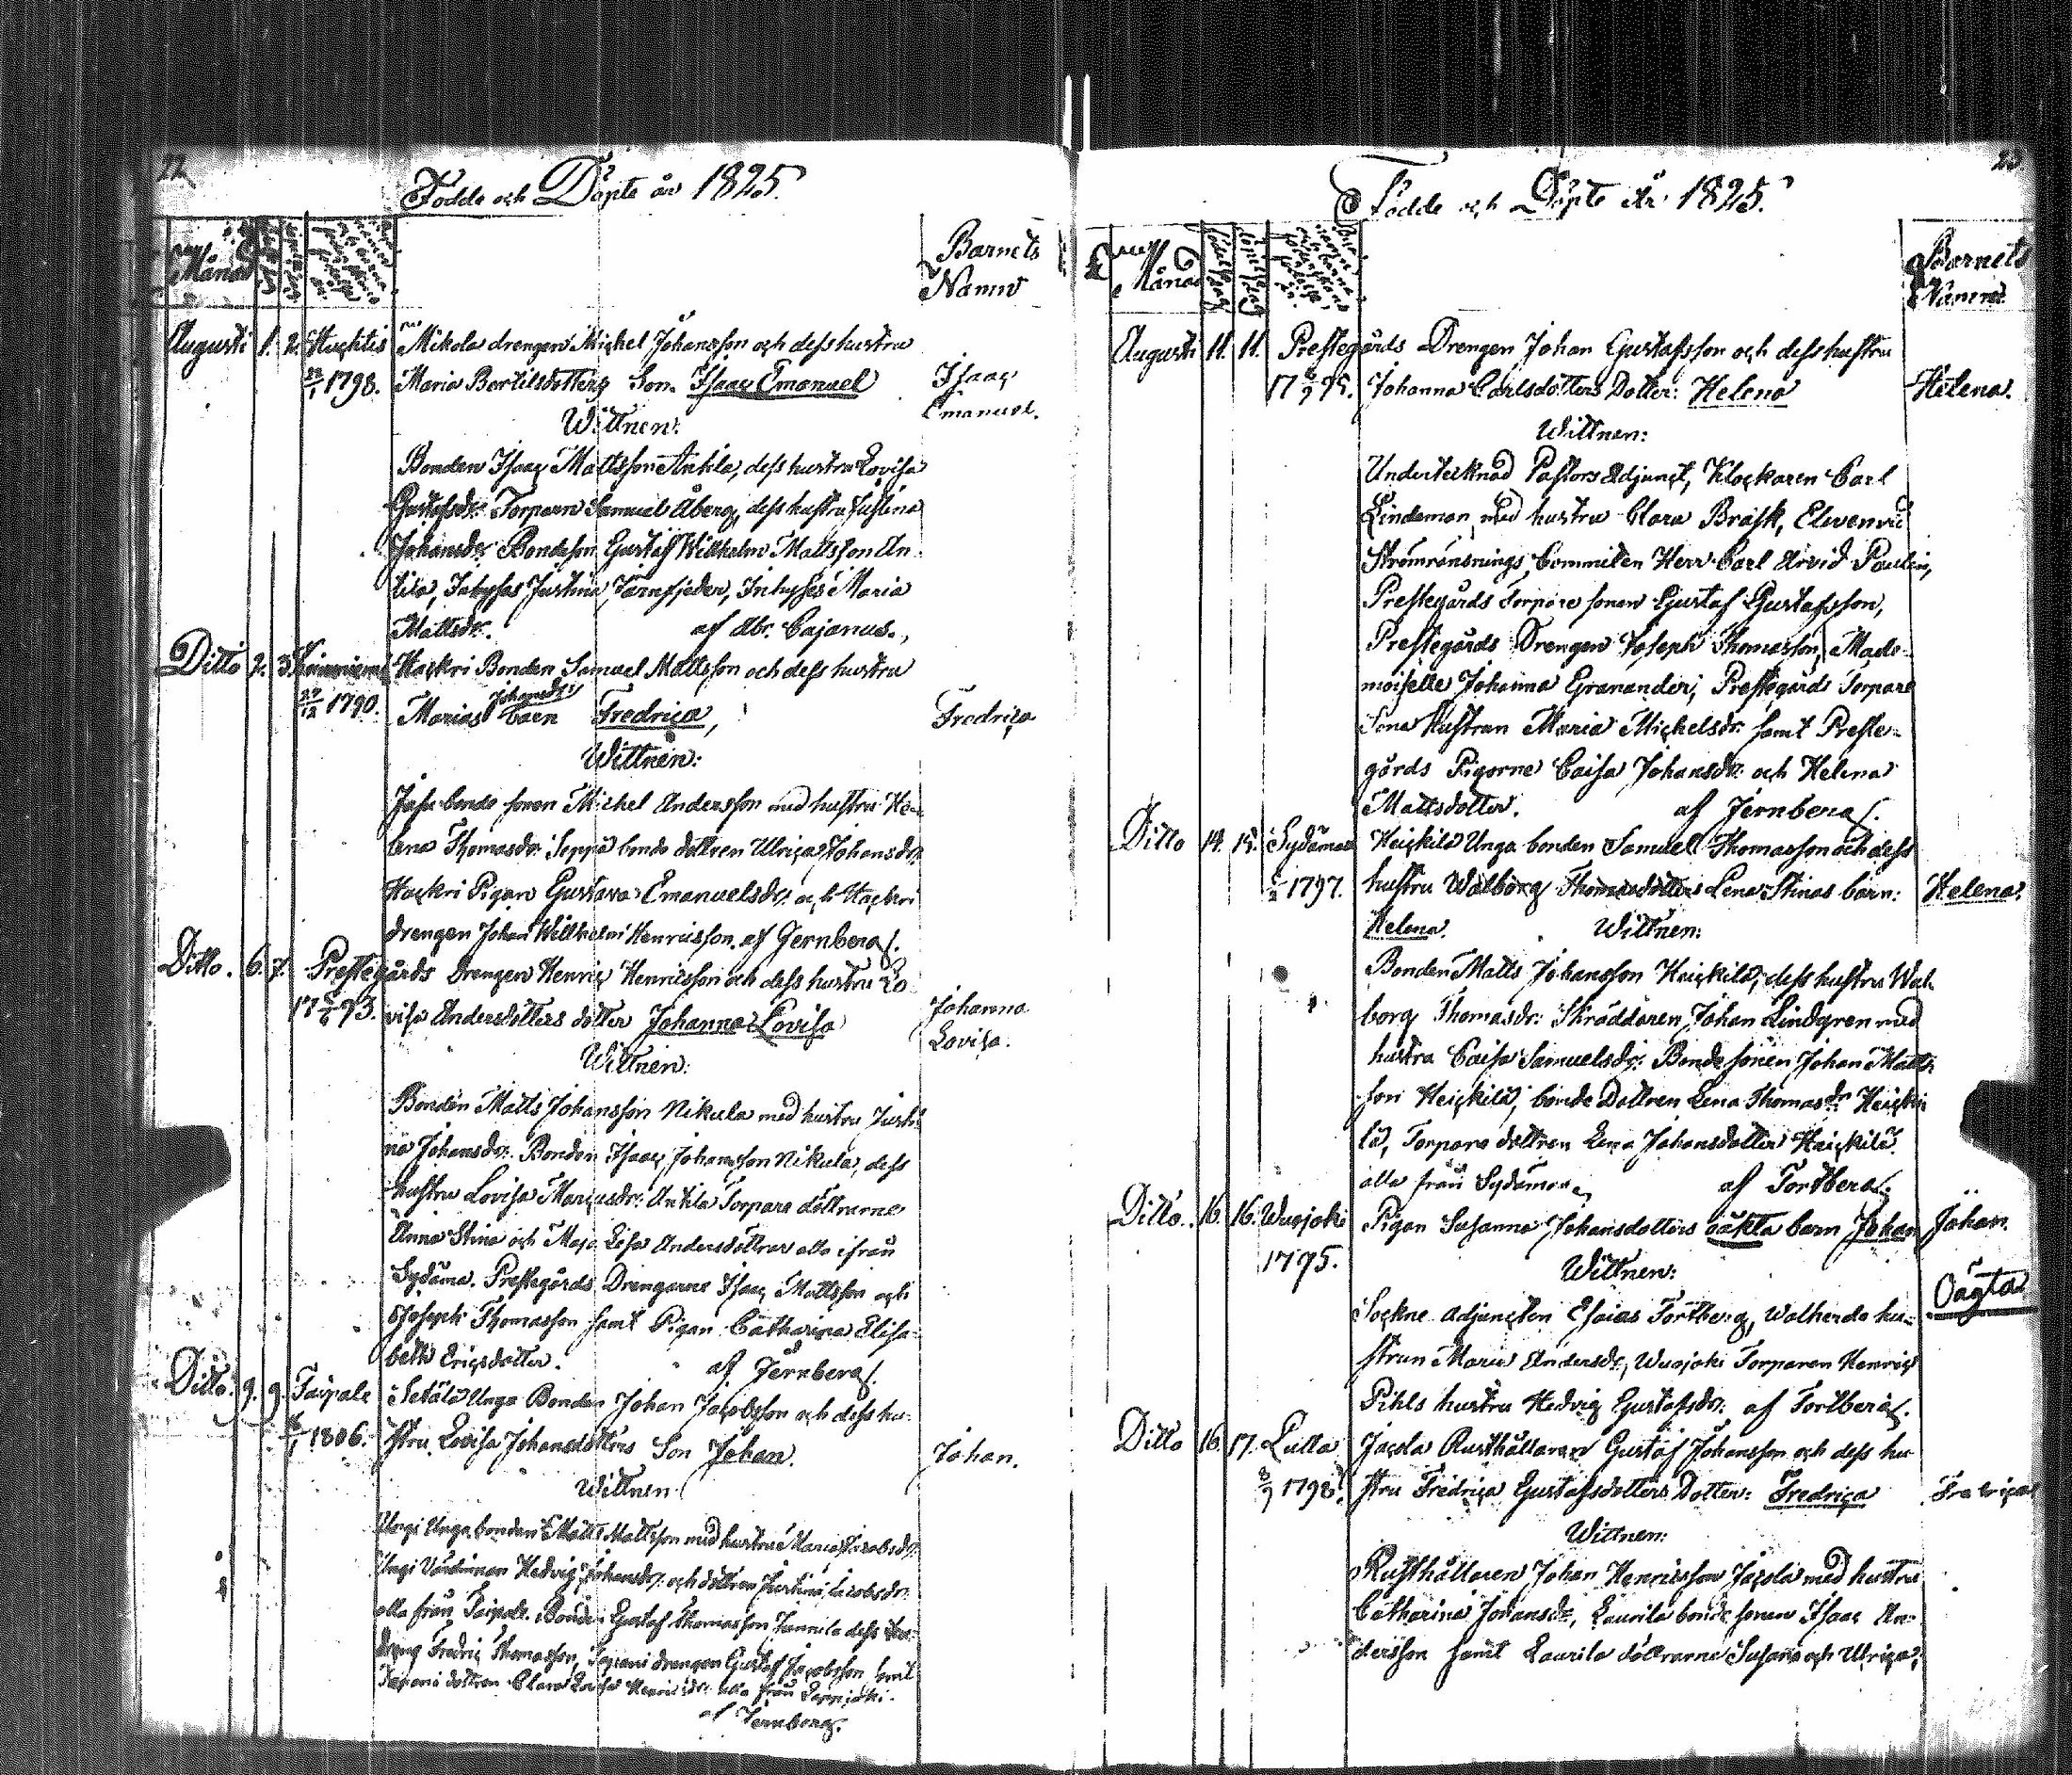 22
Födde och Döpte år 1825.
Månad
Barnets
Namn
Augusti 1. 2. Huchtis Mikola drengen Michel Johansson och dess hustru
1798. Maria Bertilsdotters Son Isaac Emanuel
Isaac
Emanuel.
Wittnen:
Bonden Isaac Mattsson Ankila, dess hustru Lovisa
Gustafsdr. Torparn Samuel Åberg, dess hustru Justina
Johansdr. Bondeson Gustaf Willhelm Mattsson An-
kila, Inhyses Justina Jernfjeder, Inhyses Maria
Mattsdr. af Abr. Cajanus.
Ditto 2. 3. Hackri Bonden Samuel Mattsson och dess hustru
29/12 1790. Marias Johansdrs barn Fredrica,
Fredrica
Wittnen:
bonde sonen Michel Andersson med hustru He-
lena Thomasdr. Seppä bonde dottren Ulrica Johansdr.
Hackri Pigan Gustava Emanuelsdr. och Hackri
drengen Johan Willhelm Henricsson. af Jernberg.
Ditto. 6. 7. Prestegårds Drengen Henric Henricsson och dess hustru Lo-
1793. visa Andersdotters dotter Johanna Lovisa
Johanna
Lovisa.
Wittnen:
Bonden Matts Johansson Nikula med hustru Justi-
na Johansdr. Bonden Isaac Johansson Nikula, dess
hustru Lovisa Marcusdr. Ankila Torpare döttrarne
Anna Stina och Maja Lisa Andersdöttrar alla ifrån
Sydäma. Prestegårds Drengarne Isaac Mattsson och
Joseph Thomasson samt Pigan Catharina Elisa-
beth Ericsdotter. af Jernberg.
Ditto. 9. 9. Taipale Setälä Unga Bonden Johan Jacobsson och dess hu-
1806. stru Lovisa Johansdotters Son Johan.
Johan.
Wittnen
Unga bonden Matts Mattsson med hustru Maria Jacobsdr.
Värdinnan Hedvig Johansdr. och dottren Justina Jacobsdr.
alla från Taipale. Bonden Gustaf Thomasson Tannila dess
dreng Fredric Thomasson, drengen Gustaf Jacobsson samt
dottren Clara Lovisa alla från
af Jernberg.
23.
Födde och Döpte År 1825.
Månad
Barnets
Namn.
Augusti 11. 11. Prestegårds Drengen Johan Gustafsson och dess hustru
1795. Johanna Carlsdotters Dotter: Helena
Helena.
Wittnen:
Undertecknad Pastors Adjunct, Klockaren Carl
Lindeman med hustru Clara Brask, Eleven vid
Strömränsnings Committen Herr Carl Arvid Paulin,
Prestegårds Torpare sonen Gustaf Gustafsson,
Prestegårds Drengen Joseph Thomasson, Made-
moiselle Johanna Granander, Prestegårds Torpare
Sona Hustrun Maria Mickelsdr. samt Preste-
gårds Pigorne Caisa Johansdr. och Helena
Mattsdotter. af Jernberg.
Ditto 14. 15. Sydämaa Heickilä Unga bonden Samuel Thomasson och dess
1797. hustru Walborg Thomasdotters Lena Stinas barn:
Helena.
Helena. Wittnen:
Bonden Matts Johansson Heickilä, dess hustru Wal-
borg Thomasdr. Skräddaren Johan Lindgren med
hustru Caisa Samuelsdr. Bonde sonen Johan Matts-
son Heickilä, bonde Dottren Lena Thomasdr. Heicki-
lä, Torpare dottren Lena Johansdotter Heickilä.
alla från Sydämaa. af Tortberg.
Ditto. 16. 16. Wuojoki Pigan Susanna Johansdotters oäkta barn Johan
Johan.
1795.
Wittnen:
Oägta
Sockne adjuncten Esaias Tortberg, Walherda hu-
strun Maria Andersdr., Wuojoki Torparen Henric
Pihls hustru Hedvig Gustafsdr. af Tortberg.
Ditto 16. 17. Lutta Jacola Rusthållaren Gustaf Johansson och dess hu-
1798. stru Fredrica Gustafsdotters Dotter: Fredrica
Fredrica
Wittnen:
Rusthållaren Johan Henricsson Jacola med hustru
Catharina Johansdr., Laurila bonde sonen Isaac An-
dersson samt Laurila döttrarne Susana och Ulrica,